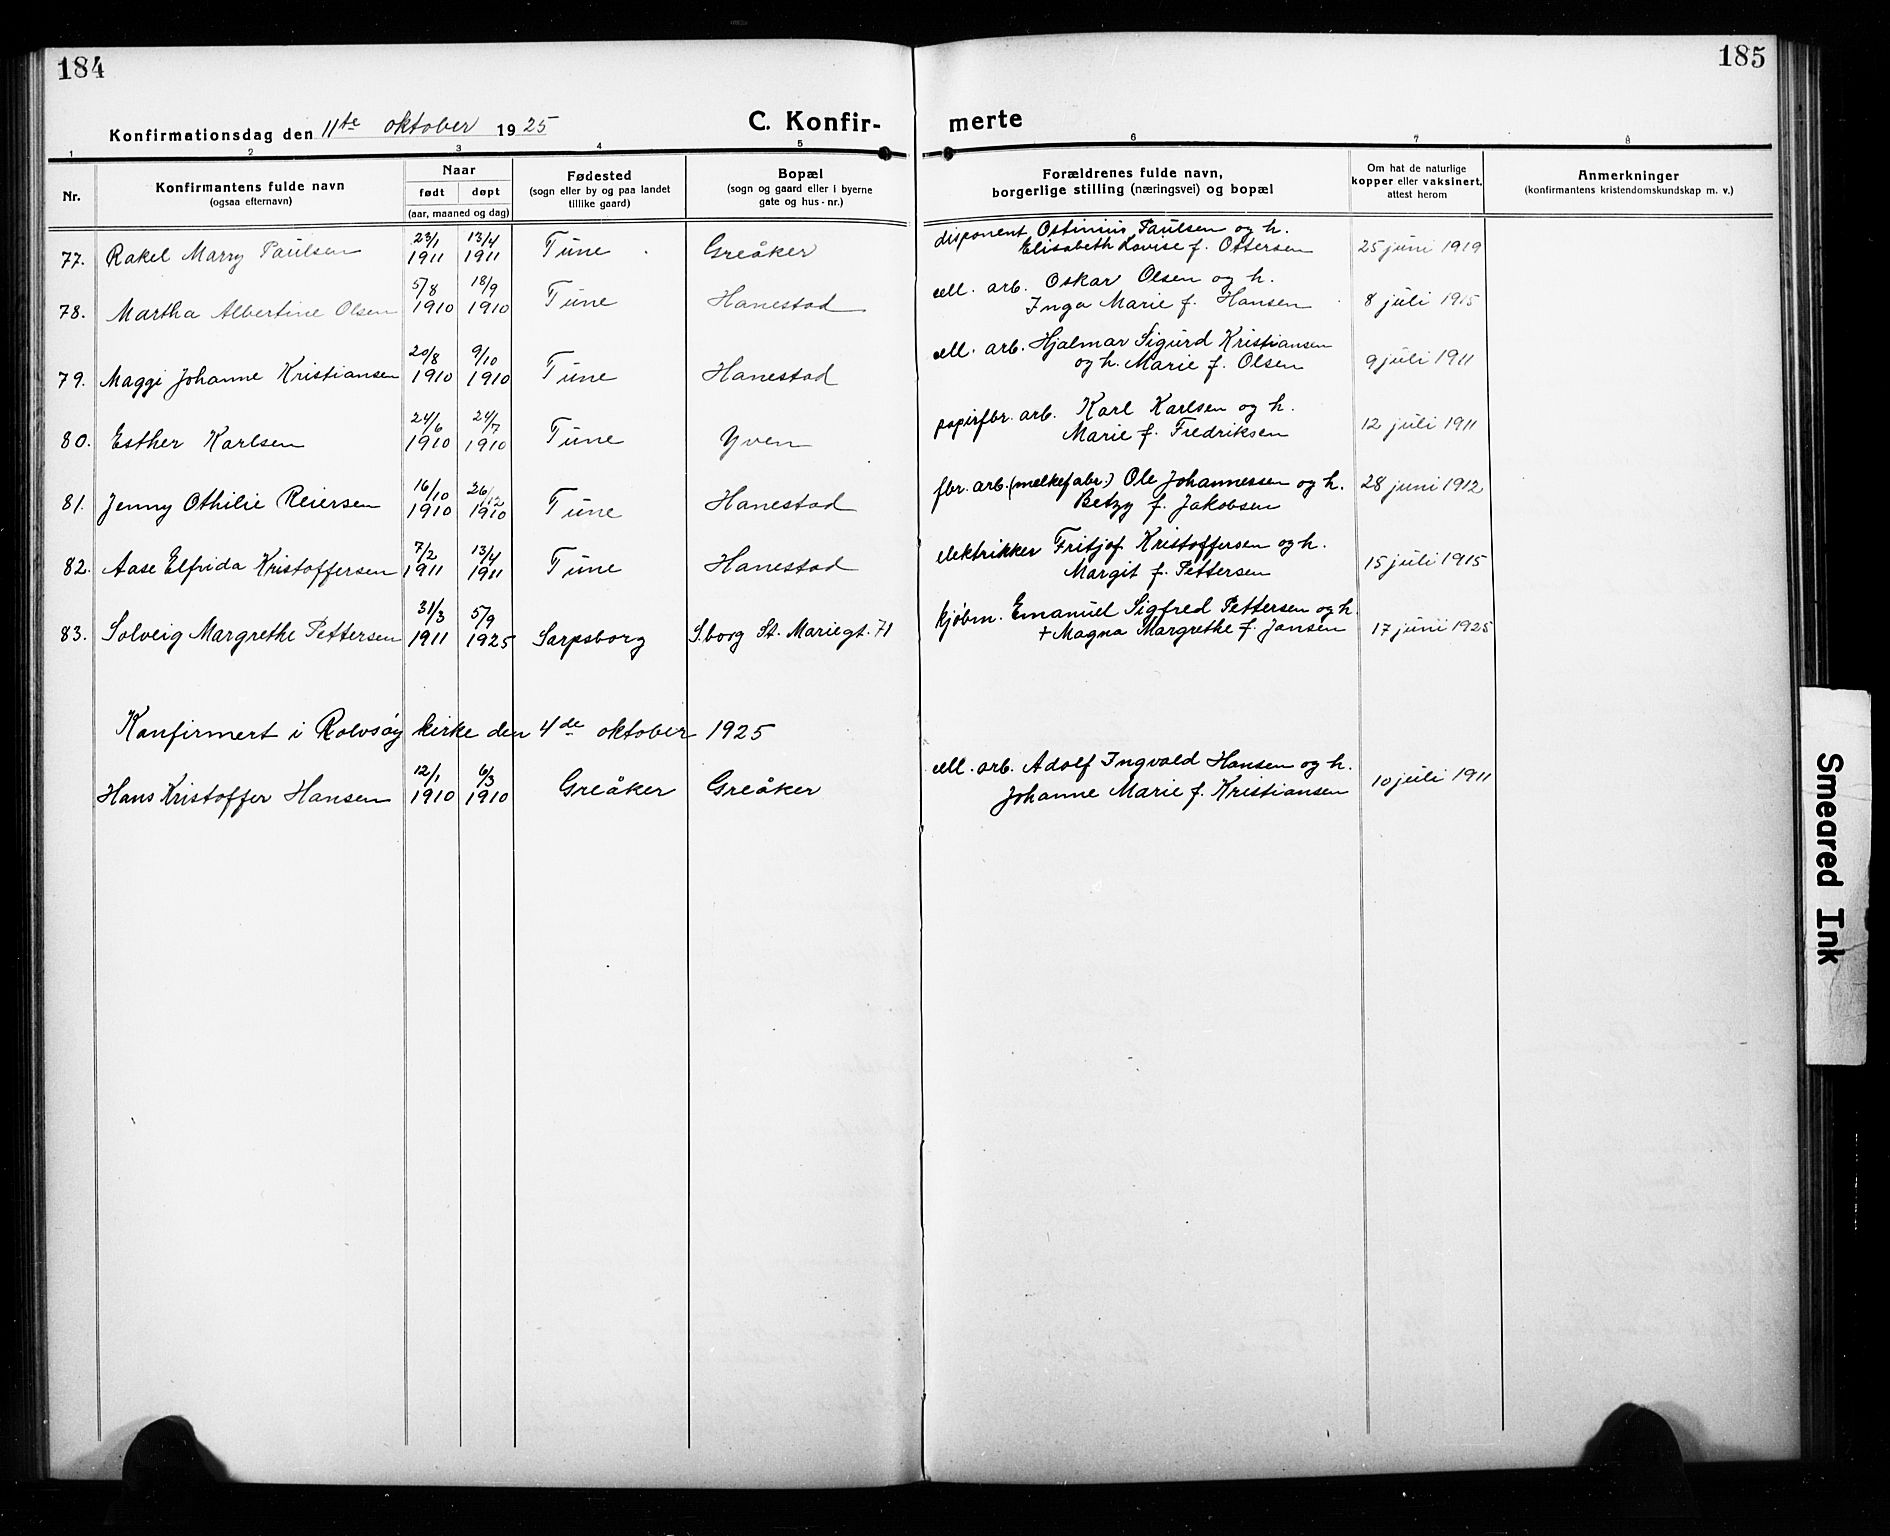 184
185
Konfirmationsdag den 11te oktober 1925
C. Konfir-
merte
1 2 3 4 5 6 7 8
Nr.
Konfirmantens fulde navn
(ogsaa efternavn)
Naar
født døpt
(aar, maaned og dag)
Fødested
(sogn eller by og paa landet
tillike gaard)
Bopæl
(sogn og gaard eller i byerne
gate og hus-nr.)
Forældrenes fulde navn,
borgerlige stilling (næringsvei) og bopæl
Om hat de naturlige
kopper eller vaksinert,
attest herom
Anmerkninger
(konfirmantens kristendomskundskap m. v.)
77. Rakel Marry Paulsen 23/1 1911 13/4 1911 Tune Greåker disponent Ostinius Paulsen og h.
Elisabeth Lovise f. Ottersen 25 juni 1919
78. Martha Albertine Olsen 5/8 1910 18/9 1910 Tune Hanestad cell. arb. Oskar Olsen og h.
Inga Marie f. Hansen 8 juli 1915
79. Maggi Johanne Kristiansen 20/8 1910 9/10 1910 Tune Hanestad cell. arb. Hjalmar Sigurd Kristiansen
og h. Marie f. Olsen 9 juli 1911
80. Esther Karlsen 24/6 1910 24/7 1910 Tune Yven papirfbr. arb. Karl Karlsen og h.
Marie f. Fredriksen 12 juli 1911
81. Jenny Othilie Reiersen 16/10 1910 26/12 1910 Tune Hanestad fbr. arb. (melkefabr.) Ole Johannessen og h.
Betzy f. Jakobsen 28 juni 1912
82. Aase Elfrida Kristoffersen 7/2 1911 13/4 1911 Tune Hanestad elektrikker Fritjof Kristoffersen og h.
Margit f. Pettersen 15 juli 1915
83. Solveig Margrethe Pettersen 31/3 1911 5/9 1925 Sarpsborg S.borg St. Mariegt. 71 kjøbm. Emanuel Sigfred Pettersen og h.
+ Magna Margrethe f. Jansen 17 juni 1925
Konfirmert i Rolvsøy kirke den 4de oktober 1925
Hans Kristoffer Hansen 12/1 1910 6/3 1910 Greåker Greåker cell. arb. Adolf Ingvald Hansen og h.
Johanne Marie f. Kristiansen 10 juli 1911
Smeared Ink